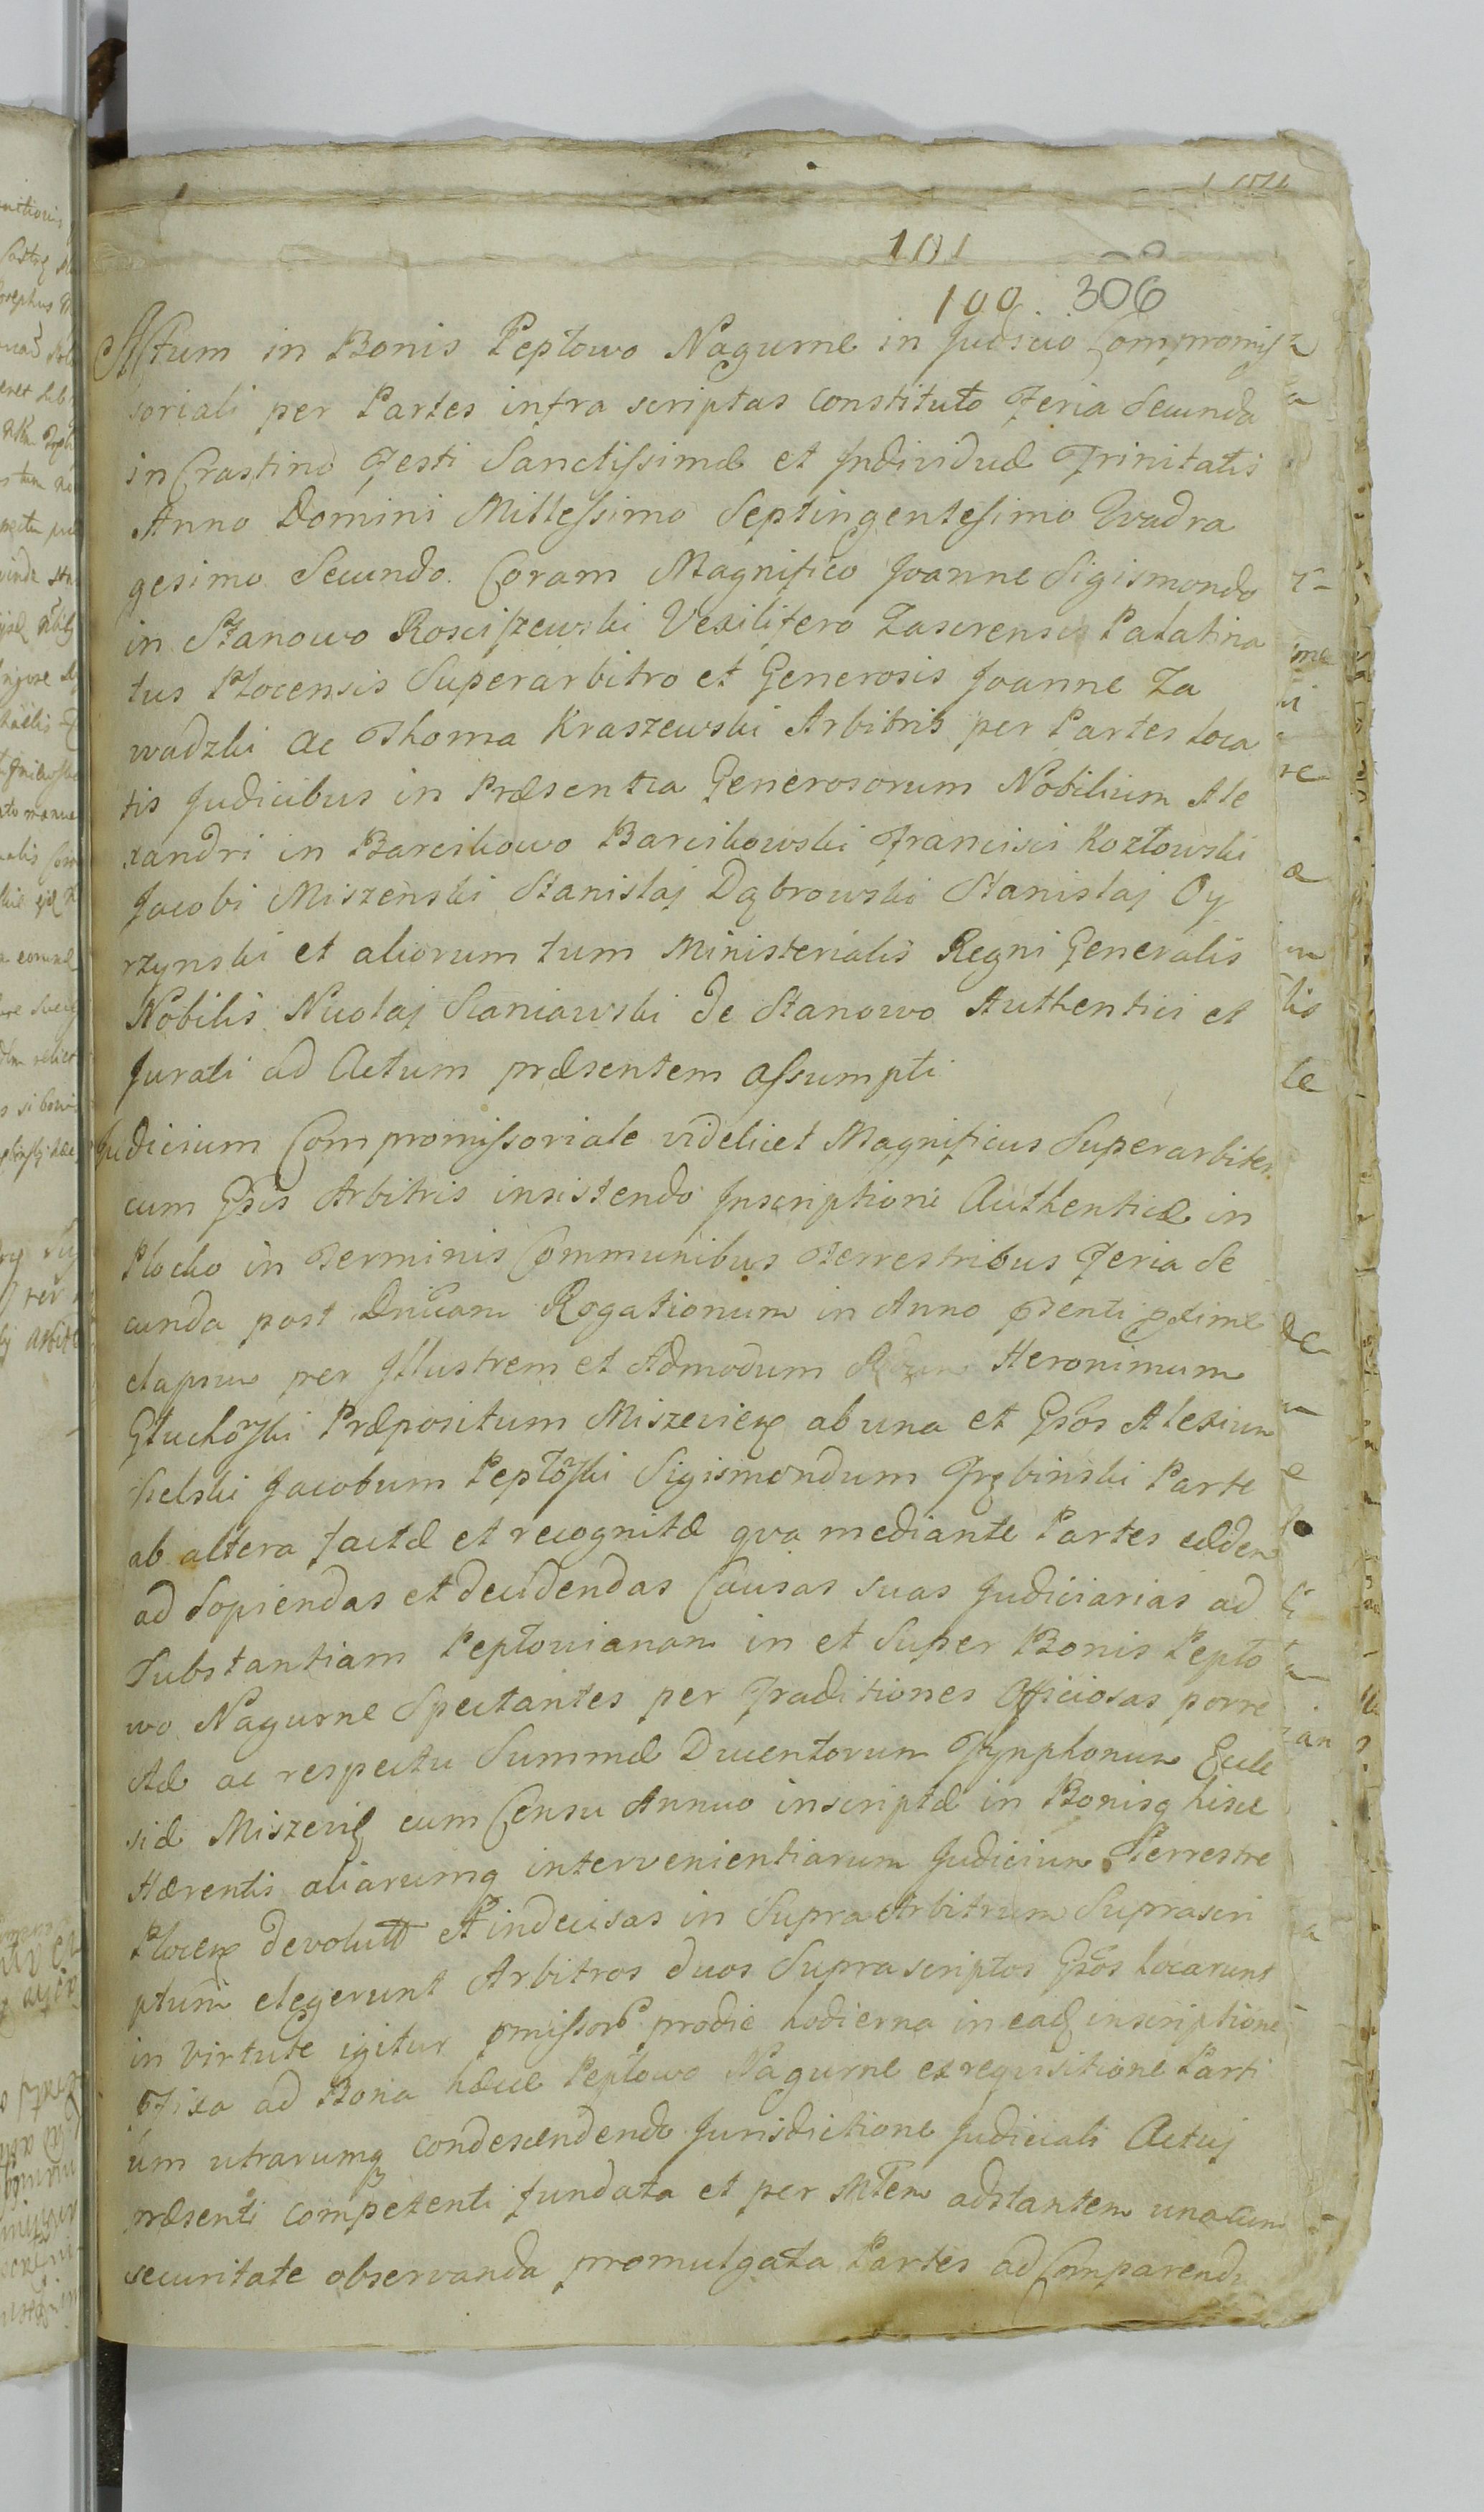 101
100. 306
Actum in Bonis Peptowo Nagurne in Judicio Compromis
soriali per Partes infra scriptas constituto Feria Secunda
in Crastino Festi Sanctissimæ et Individuæ Trinitatis
Anno Domini Millessimo Septingentesimo Quadra
gesimo Secundo. Coram Magnifico Joanne Sigismondo
in Stanowo Rosciszewski Vexilifero Zascrensis Palatina
tus Plocensis Superarbitro et Generosis Joanne Za
wadzki ac Thoma Kraszewski Arbitris per Partes loca
tis Judicibus in Præsentia Generosorum Nobilium Ale
xandri in Barcikowo Barcikowski Francisci Kozłowski
Jacobi Miszenski Stanislaj Dąbrowski Stanislaj Oy
rzynski et aliorum tum Ministerialis Regni Generalis
Nobilis Nicolaj Staniawski de Stanowo Authentici et
Jurati ad Actum præsentem assumpti
Judicium Compromissoriale videlicet Magnificus Superarbiter
cum Gsis Arbitris insistendo Inscriptioni Authenticæ in
Plocko in Terminis Communibus Terrestribus Feria Se
cunda post Dnicam Rogationum in Anno psenti pxime
elapsum per Illustrem et Admodum Heronimum
Głuchoski Præpositum Miszevien ab una et Gsos Alexium
Sielski Jacobum Peptoski Sigismondum Trębinski Parte
ab altera factæ et recognitæ qva mediante Partes eædem
ad Sopiendas et decidendas Causas suas Judiciarias ad
Substantiam Peptovianam in et Super Bonis Pepto
wo Nagurne Spectantes per Traditiones Officiosas porre
ctæ ac respectu Summæ Ducentorum Tynphonum Eccle
siæ Miszevien cum Censu Annuo inscriptæ in Bonisq hisce
Hærentis aliarumq intervenientiarum Judicium Terrestre
Plocen devolutt et indecisas in Supra Arbitrum Suprascri
ptum elegerunt Arbitros duos Suprascriptos Gsos locarunt
in virtute igitur pmissor prodie hodierna in eadem inscriptione
pfixa ad Bona hæcce Peptowo Nagurne ex requisitione Parti
um utrarumq condescendendo Jurisdictione Judiciali Actuj
præsenti competenti fundata et per Mtem adstantem una cum
securitate observanda promulgata Partes ad Comparendu